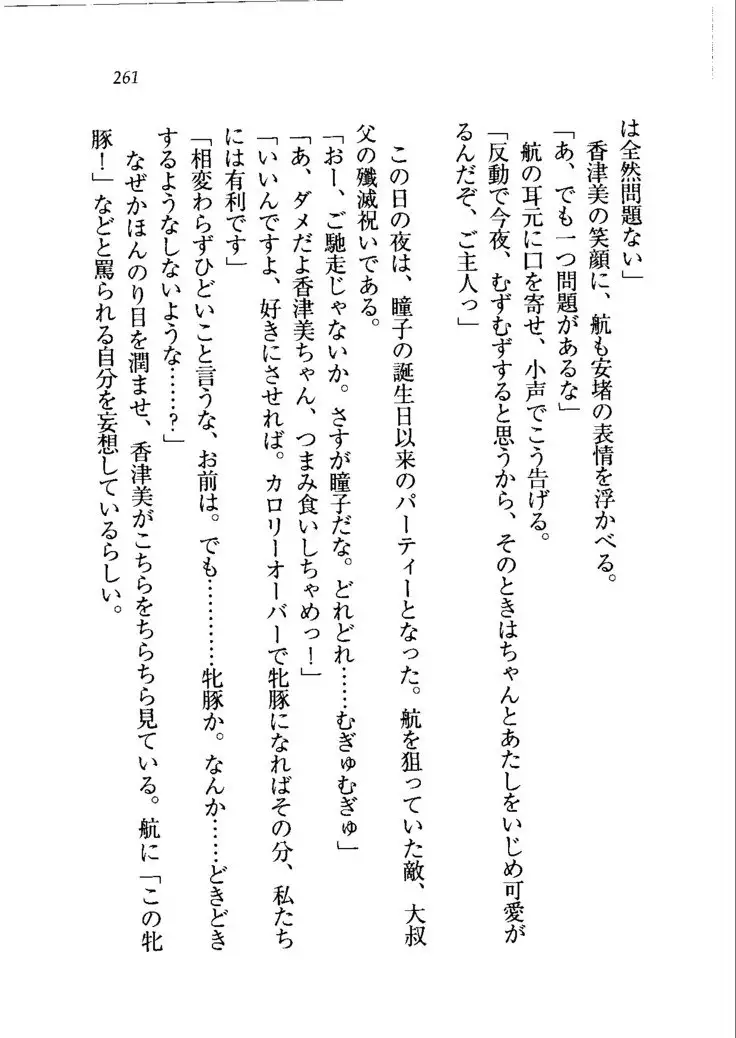 261
は全然問題ない」
香津美の笑顔に、航も安堵の表情を浮かべる。
「あ、でも一つ問題があるな」
航の耳元に口を寄せ、小声でこう告げる。
「反動で今夜、むずむずすると思うから、そのときはちゃんとあたしをいじめ可愛が
るんだぞ、ご主人っ」
この日の夜は、瞳子の誕生日以来のパーティーとなった。航を狙っていた敵、大叔
父の殲滅祝いである。
「おー、ご馳走じゃないか。さすが瞳子だな。どれどれ……むぎゅむぎゅ」
「あ、ダメだよ香津美ちゃん、つまみ食いしちゃめっ！」
「いいんですよ、好きにさせれば。カロリーオーバーで牝豚になればその分、私たち
には有利です」
「相変わらずひどいこと言うな、お前は。でも…………牝豚か。なんか……どきどき
するようなしないような……？」
なぜかほんのり目を潤ませ、香津美がこちらをちらちら見ている。航に「この牝
豚！」などと罵られる自分を妄想しているらしい。